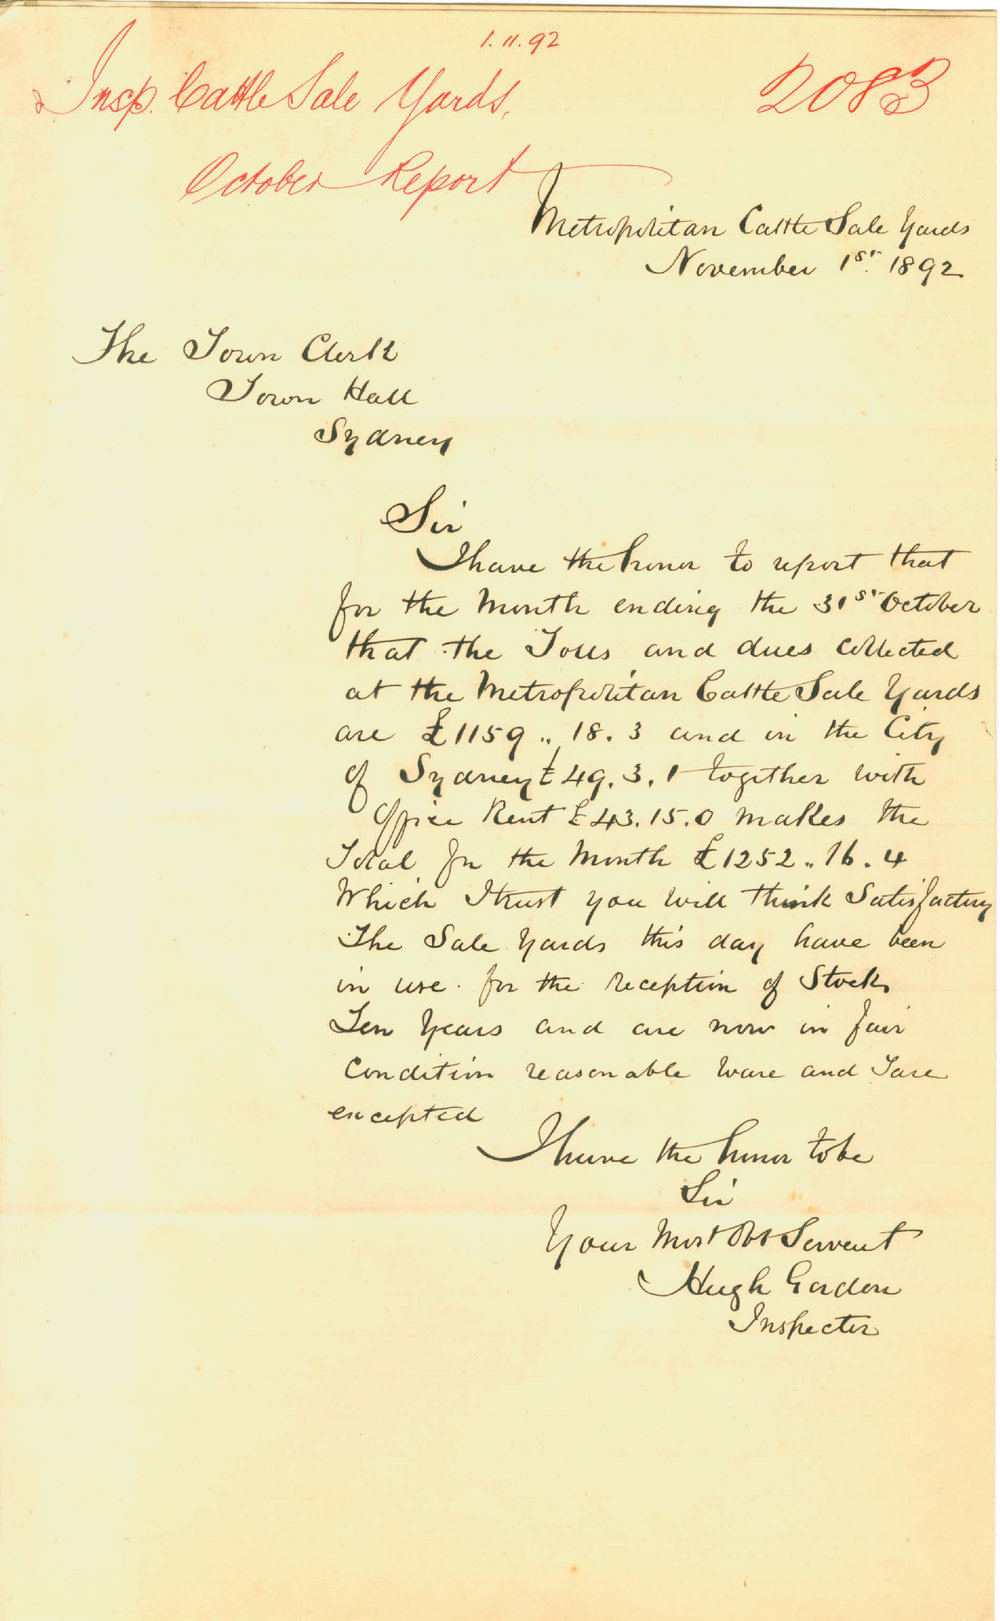 1.11.92
Insp. Cattle Sale Yards.
2083
October Report
Metropolitan Cattle Sale Yards
November 1st. 1892
The Town Clerk
Town Hall
Sydney
Sir
I have the honor to report that
for the Month ending the 31st October
that the Tolls and dues collected
at the Metropolitan Cattle Sale Yards
are £1159.. 18. 3 and in the City
of Sydney £49. 3. 1 together with
Office Rent £43. 15. 0 makes the
Total for the Month £1252.. 16. 4
Which I trust you will think Satisfactory
The Sale Yards this day have been
in use for the reception of Stock
Ten Years and are now in fair
Condition reasonable ware and Tare
excepted
I have the honor to be
Sir
Your Most Obt Servent
Hugh Gordon
Inspector